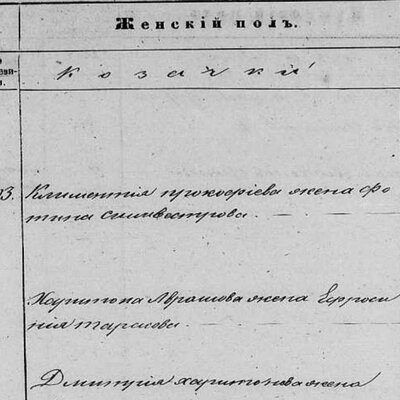 Женскій полъ.
Козачки
Климентія прокофіева жена фо
тина силивестрова.
Харитона Аврамова жена Ефроси
нія тарасова.
Дмитрія харитонова жена